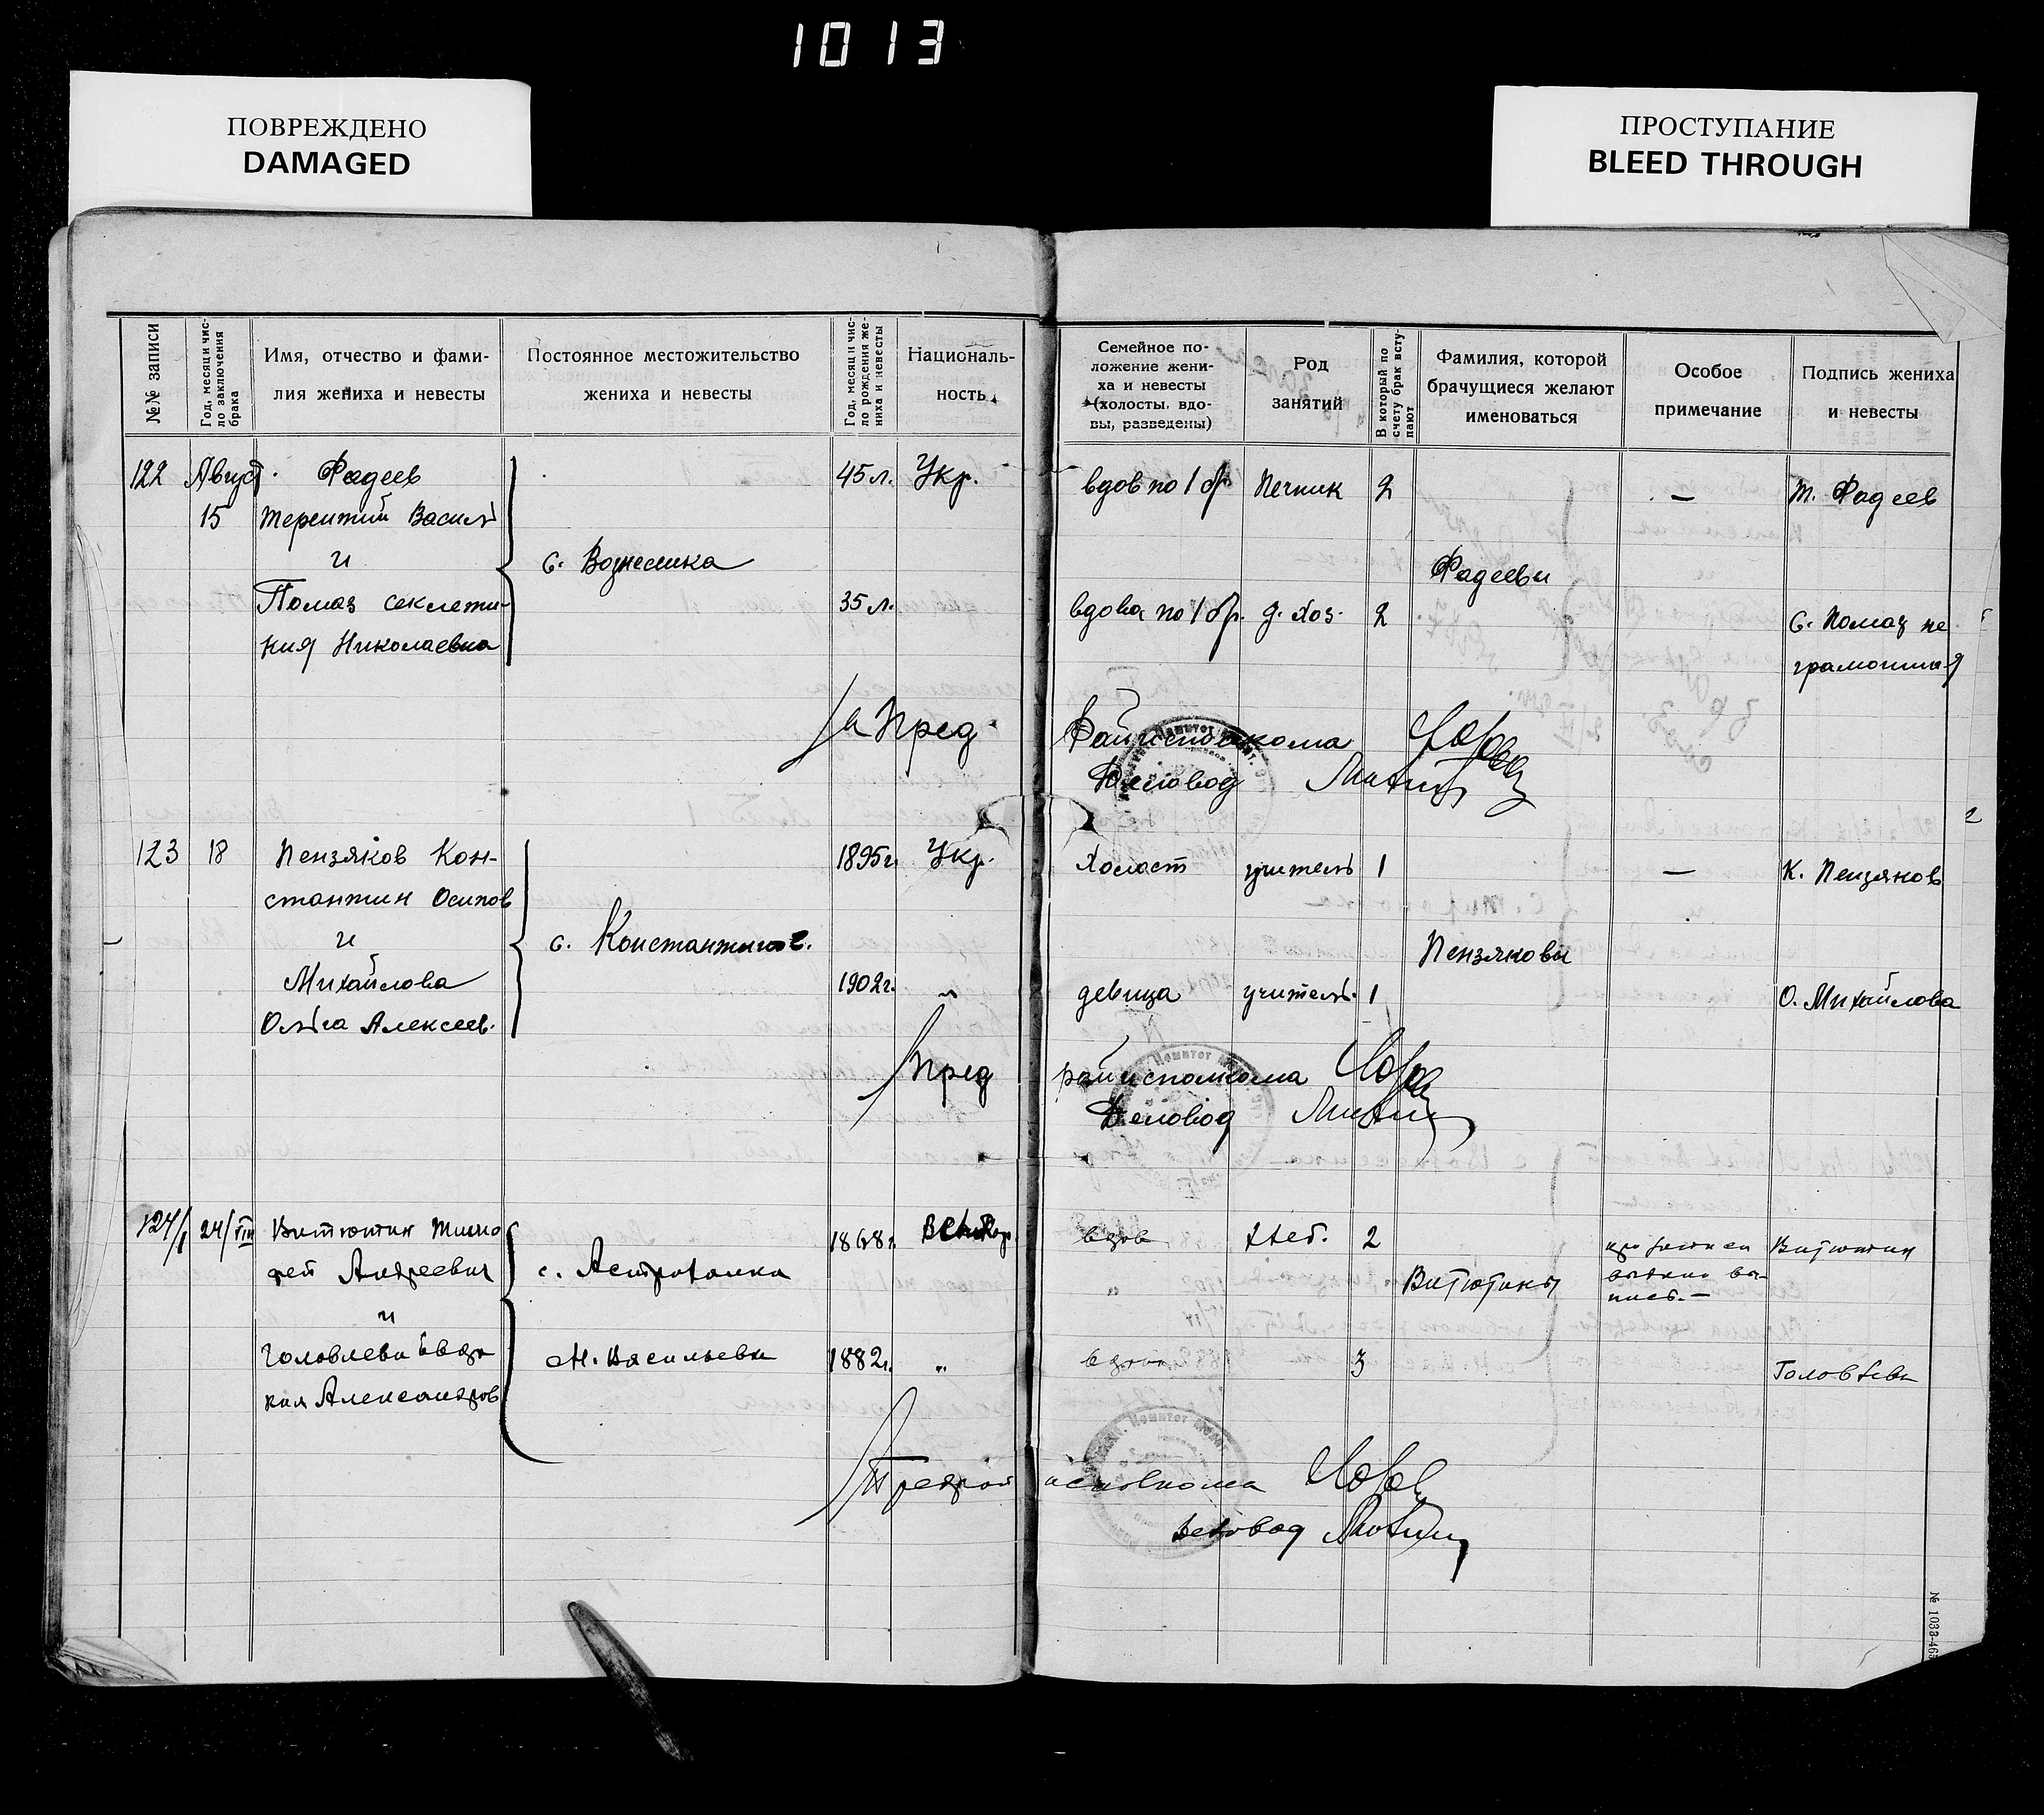 1013
ПОВРЕЖДЕНО
DAMAGED
ПРОСТУПАНИЕ
BLEED THROUGH
№№ записи
Год, месяц и чис-
ло заключения
брака
Имя, отчество и фами-
лия жениха и невесты
Постоянное местожительство
жениха и невесты
Год, месяц и чис-
ло рождения же-
ниха и невесты
Националь-
ность
Семейное по-
ложение жени-
ха и невесты
(холосты, вдо-
вы, разведены)
Род
занятий
В который по
счету брак всту-
пают
Фамилия, которой
брачущиеся желают
именоваться
Особое
примечание
Подпись жениха
и невесты
122
Август
15
Фадеев
Терентий Васил
и
Помаз Секлети-
кия Николаевна
с. Вознесенка
45 л.
35 л.
Укр.
вдов по 1 бр.
вдова по 1 бр.
Печник
д. хоз.
2
2
Фадеевы
—
Т. Фадеев
С. Помаз не
грамотная
Пред
Райисполкома
Деловод
123
18
Пензяков Кон-
стантин Осипов
и
Михайлова
Ольга Алексеев.
с. Константинов.
1895г.
1902г.
Укр.
"
Холост
девица
учитель
учитель
1
1
Пензяковы
—
К. Пензяков
О. Михайлова
Пред
райисполкома
Деловод
124/1
24/VIII
Витютин Тимо
фей Андреевич
и
Головлева Евдо
кия Александров
с. Астраханка
Н. Васильевка
1868г.
1882г.
"
вдов
вдова
хлеб.
2
3
Витютины
Витютин
Головлева
Предрай исполкома
Деловод
№ 1033-465